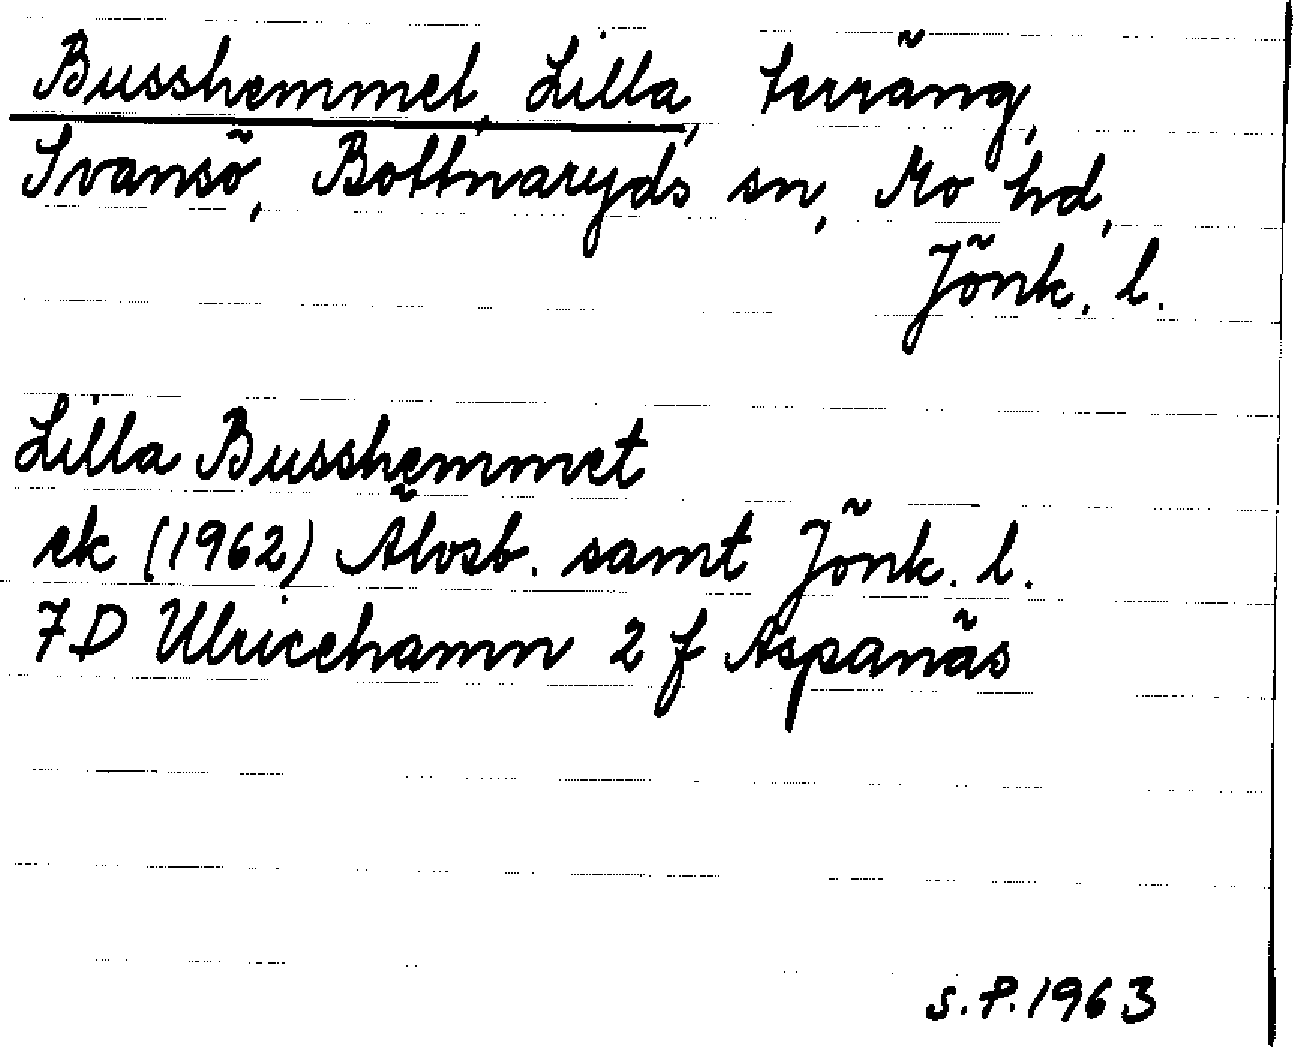 Busshemmet, Lilla, terräng,
Svansö, Bottnaryds sn, Mo hd,
Jönk. l.
Lilla Busshemmet
ek (1962) Älvsb. samt Jönk. l.
7D Ulricehamn 2 f Aspanäs
S.P. 1963